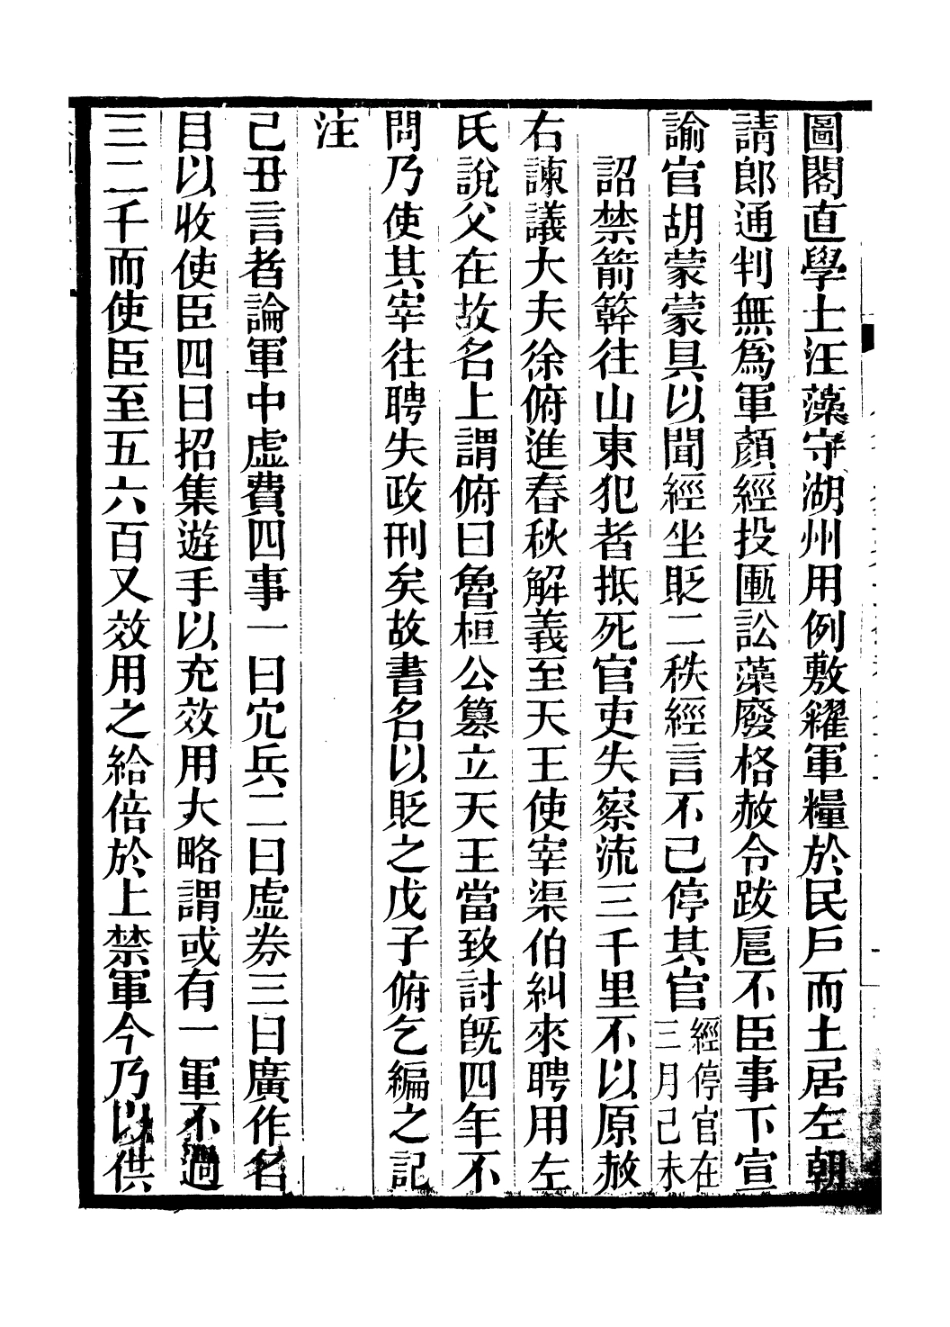 圖閣直學士汪藻守湖州用例敷糴軍糧於民戶而土居左朝
請郎通判無為軍顏經投匭訟藻廢格赦令跋扈不臣事下宣
諭官胡蒙蒙具以聞經坐貶二秩經言不已停其官經停官在三月己未
詔禁箭簳往山東犯者抵死官吏失察流三千里不以原赦
右諫議大夫徐俯進春秋解義至天王使宰渠伯糾來聘用左
氏說父在故名上謂俯曰魯桓公篡立天王當致討既四年不
問乃使其宰往聘失政刑矣故書名以貶之戊子俯乞編之記
注
己丑言者論軍中虛費四事一曰冗兵二曰虛券三曰廣作名
目以收使臣四曰招集遊手以充效用大略謂或有一軍不過
三二千而使臣至五六百又效用之給倍於上禁軍今乃以供